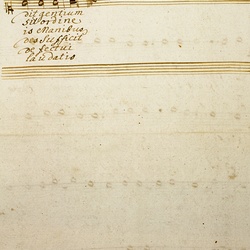 dit gentium
suo ordine
is Manibus
des sufficit
defectui
laudatis